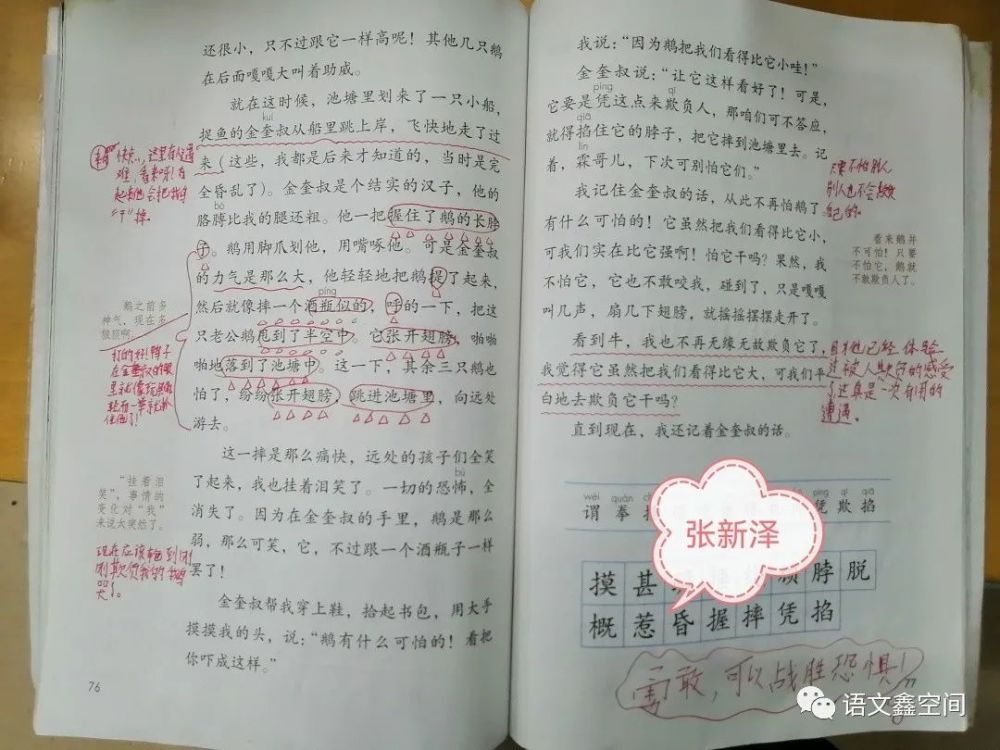 还很小，只不过跟它一样高呢！其他几只鹅
在后面嘎嘎大叫着助威。
就在这时候，池塘里划来了一只小船，
kuí
捉鱼的金奎叔从船里跳上岸，飞快地走了过
来（这些，我都是后来才知道的，当时是完
全昏乱了）。金奎叔是个结实的汉子，他的
bó
胳膊比我的腿还粗。他一把握住了鹅的长脖
子。鹅用脚爪划他，用嘴啄他。可是金奎叔
的力气是那么大，他轻轻地把鹅提了起来，
píng
然后就像摔一个酒瓶似的，呼的一下，把这
只老公鹅甩到了半空中。它张开翅膀，啪啪
啪地落到了池塘中。这一下，其余三只鹅也
怕了，纷纷张开翅膀，跳进池塘里，向远处
游去。
这一摔是那么痛快，远处的孩子们全笑
bù
了起来，我也挂着泪笑了。一切的恐怖，全
消失了。因为在金奎叔的手里，鹅是那么
弱，那么可笑，它，不过跟一个酒瓶子一样
罢了！
金奎叔帮我穿上鞋，拾起书包，用大手
摸摸我的头，说：“鹅有什么可怕的！看把
你吓成这样。”
76
这里有人遇
难，看来呀！有
起来他会把我
“干”掉。
鹅之前多
神气，现在多
狼狈啊。
打的好！脖子
在金奎叔的眼
里就像玩具
“挂着泪
笑”，事情的
变化对“我”
来说太突然了。
现在应该轮到
欺负我的鹅
哭了。
我说：“因为鹅把我们看得比它小哇！”
金奎叔说：“让它这样看好了！可是，
píng qī
它要是凭这点来欺负人，那咱们可不答应，
qiā
就得掐住它的脖子，把它摔到池塘里去。记
lín
着，霖哥儿，下次可别怕它们。”
我记住金奎叔的话，从此不再怕鹅了。
有什么可怕的！它虽然把我们看得比它小，
可我们实在比它强啊！怕它干吗？果然，我
不怕它，它也不敢咬我，碰到了，只是嘎嘎
叫几声，扇几下翅膀，就摇摇摆摆走开了。
看到牛，我也不再无缘无故欺负它了，
我觉得它虽然把我们看得比它大，可我们平
白地去欺负它干吗？
直到现在，我还记着金奎叔的话。
只要不怕别人
别人也不会欺负
自己的。
看来鹅并
不可怕！只要
不怕它，鹅就
不敢欺负人了。
且他已经体验
过被人欺负的感受
了，这真是一次有用的
遭遇。
wèi quán píng qī qiā
谓 拳 凭 欺 掐
张新泽
摸 甚 脖 脱
概 惹 昏 握 摔 凭 掐
勇敢，可以战胜恐惧！
语文鑫空间